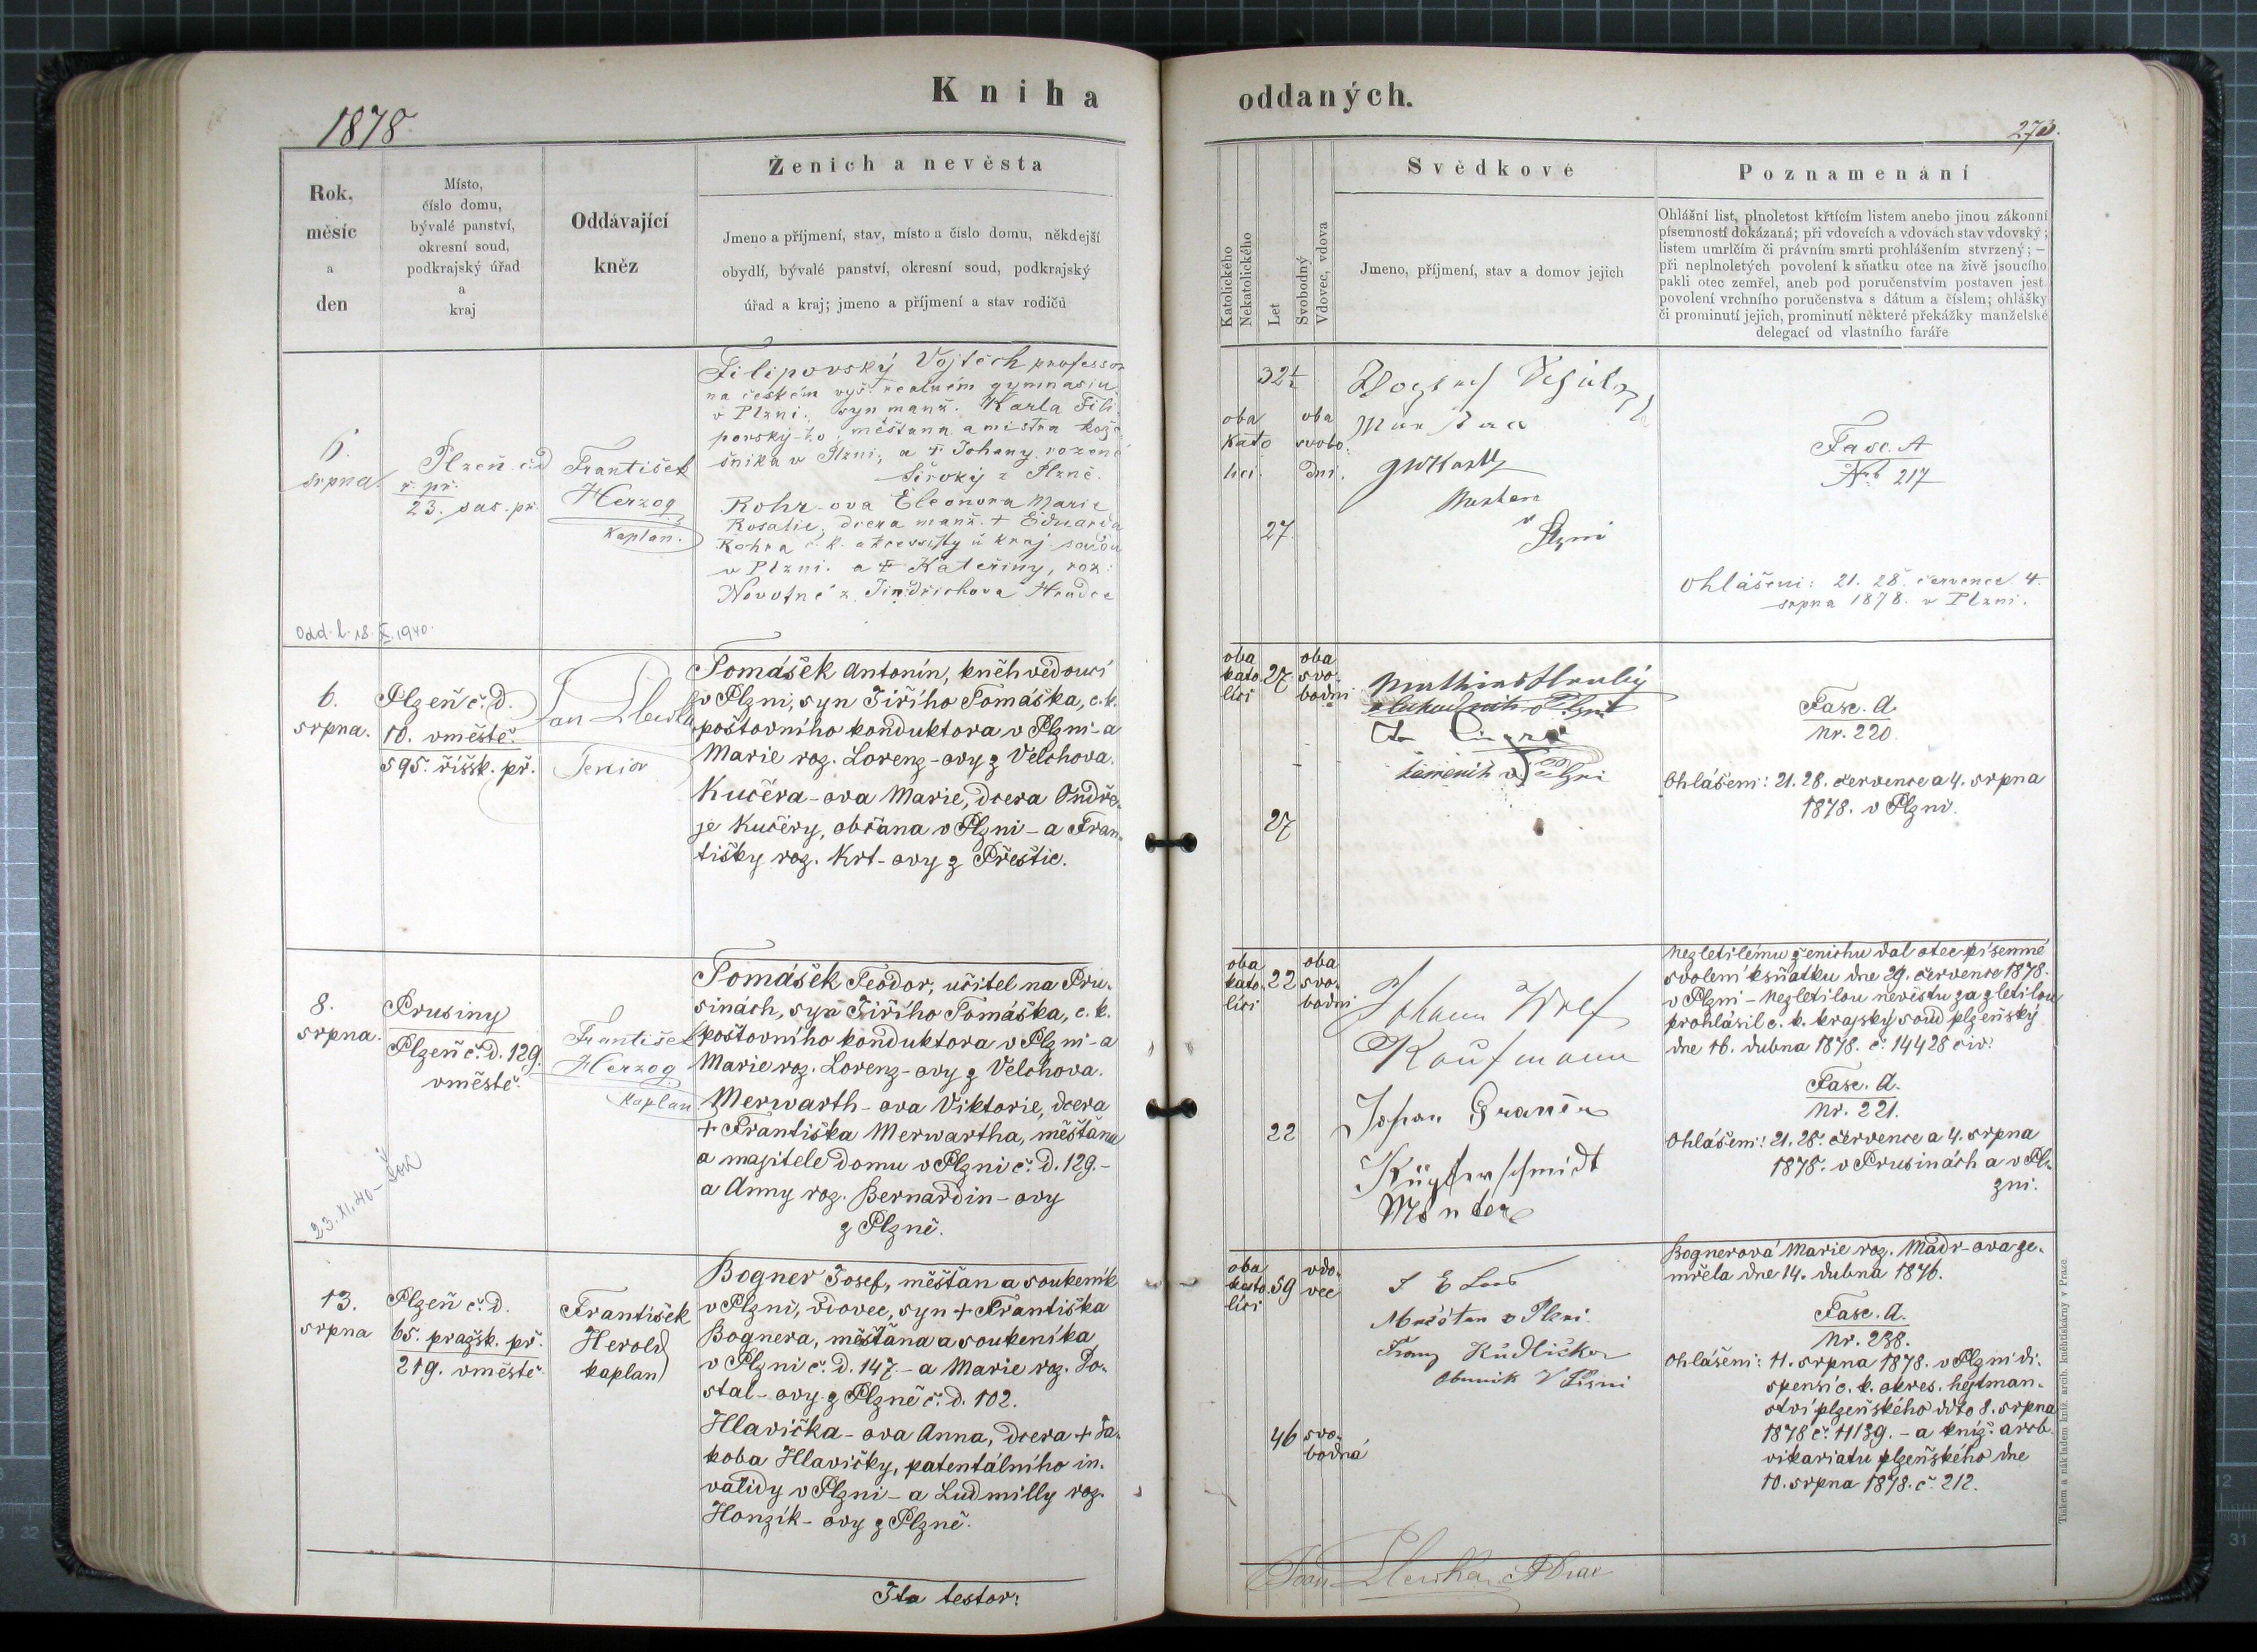 Kniha
1878
Rok,
měsíc
a
den
Místo,
číslo domu,
bývalé panství,
okresní soud,
podkrajský úřad
a
kraj
Oddávající
kněz
Ženich a nevěsta
Jmeno a příjmení, stav, místo a číslo domu, někdejší
obydlí, bývalé panství, okresní soud, podkrajský
úřad a kraj; jmeno a příjmení a stav rodičů
6.
srpna.
Plzeň č.d
ř. př.
23. sas. př.
František
Herzog
kaplan.
Filipovský Vojtěch professor
na českém vyš. realném gymnasiu
v Plzni. syn manž. Karla Fili
povský-ho, měštana a mistra kože
šníka v Plzni, a † Johany rozené
Široký z Plzně.
Rohr-ova Eleonora Marie
Rosalie, dcera manž. † Eduarda
Rohra c.k. akcessisty u kraj. soudu
v Plzni. a † Kateřiny, roz.
Novotné z Jindřichova Hradce
Odd. l. 18.X.1940.
6.
srpna.
Plzeň č. d.
10. vměstě.
595. říšsk. př.
Jan
Tomášek Antonín, kněhvedoucí
v Plzni, syn Jiřího Tomáška, c. k.
poštovního konduktora v Plzni - a
Marie roz. Lorenz-ovy z Velchova.
Kučera-ova Marie, dcera Ondře-
je Kučery, občana v Plzni - a Fran-
tišky roz. Krt-ovy z Přeštic.
8.
srpna.
Prusiny
Plzeň č. d. 129.
vměstě.
František
Herzog
kaplan.
Tomášek Teodor, učitel na Pru-
sinách, syn Jiřího Tomáška, c. k.
poštovního konduktora v Plzni - a
Marie roz. Lorenz-ovy z Velchova.
Merwarth-ova Viktorie, dcera
† Františka Merwartha, měšťana
a majitele domu v Plzni č. d. 129.-
a Anny roz. Bernardin-ovy
z Plzně.
23.XI.40-
13.
srpna
Plzeň č. d.
65. pražsk. př.
219. vměstě
František
Herold
kaplan
Bogner Josef, měšťan a soukeník
v Plzni, vdovec, syn † Františka
Bognera, měšťana a soukeníka
v Plzni č. d. 147 - a Marie roz. Do-
stal-ovy z Plzně č. d. 102.
Hlavička-ova Anna, dcera † Ja-
koba Hlavičky, patentálního in-
validy v Plzni - a Ludmilly roz.
Honzík-ovy z Plzně.
Ita testor:
oddaných.
273.
Katolického
Nekatolického
Let
Svobodný
Vdovec, vdova
Svědkové
Jmeno, příjmení, stav a domov jejich
Poznamenání
Ohlášní list, plnoletost křtícím listem anebo jinou zákonní
písemností dokázaná; při vdovcích a vdovách stav vdovský;
listem umrlčím či právním smrti prohlášením stvrzený; —
při neplnoletých povolení k sňatku otce na živě jsoucího
pakli otec zemřel, aneb pod poručenstvím postaven jest
povolení vrchního poručenstva s dátum a číslem; ohlášky
či prominutí jejich, prominutí některé překážky manželské
delegací od vlastního faráře
32½
oba
kato
lici.
oba
svobo
dní.
27.
v
Plzni
Fasc. A
No 217
Ohlášení: 21. 28. července 4.
srpna 1878. v Plzni.
oba
kato
líci
27
oba
svo-
bodni
27
Mathias Hruby
v Plzni
kameník v Plzni
Fasc. A.
Nr. 220.
Ohlášení: 21. 28. července a 4. srpna
1878. v Plzni.
oba
kato-
líci
22
oba
svo-
bodni
22
Johann Wolf
Kaufmann
Johan
Kupferschmidt
Nezletilému ženichu dal otec písemné
svolení ksňatku dne 29. července 1878.
v Plzni - Nezletilou nevěstu za zletilou
prohlásil c. k. krajský soud plzeňský
dne 16. dubna 1878. č. 14428 civ.
Fasc. A.
Nr. 221.
Ohlášení: 21. 28. července a 4. srpna
1878. v Prusinách a v Pl-
zni.
oba
kato
líci
59
vdo-
vec
46
svo-
bodná
Měšťan v Plzni.
Franz Kudlička
Obuvník V Plzni
Bognerová Marie roz. Mádr-ova ze-
mřela dne 14. dubna 1876.
Fasc. A.
Nr. 238.
Ohlášení: 11. srpna 1878. v Plzni di-
spensí c. k. okres. hejtman-
ství plzeňského ddto 8. srpna
1878 č. 11139. - a kníž. arcb.
vikariatu plzeňského dne
10. srpna 1878. č. 212.
Tiskem a nákladem kníž. arcib. kněhtiskárny v Praze